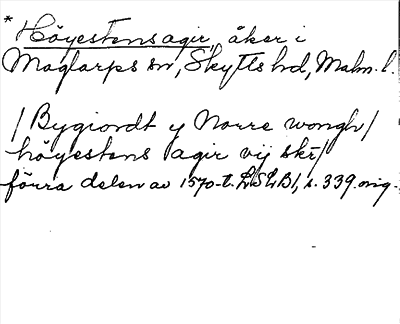 * Höyestens agir, åker i
Maglarps sn, Skytts hd, Malm. l.
/ Bygiordt y Norre wongh /
höyestens agir vij skr /
förra delen av 1570-t. LSLB1, s. 339. orig.